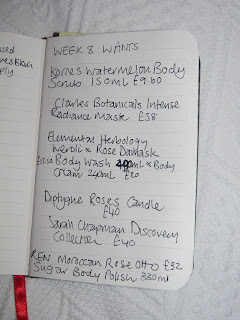 WEEK 8 WANTS
Korres Watermelon Body
Scrub 150ml £9.60
Clarks Botanicals Intense
Radiance Mask £58
Elemental Herbology
Neroli & Rose Damask
Body Wash & Body
Cream 240ml £20
Diptyque Roses Candle
£40
Sarah Chapman Discovery
Collection £40
REN Moroccan Rose Otto £32
Sugar Body Polish 330ml